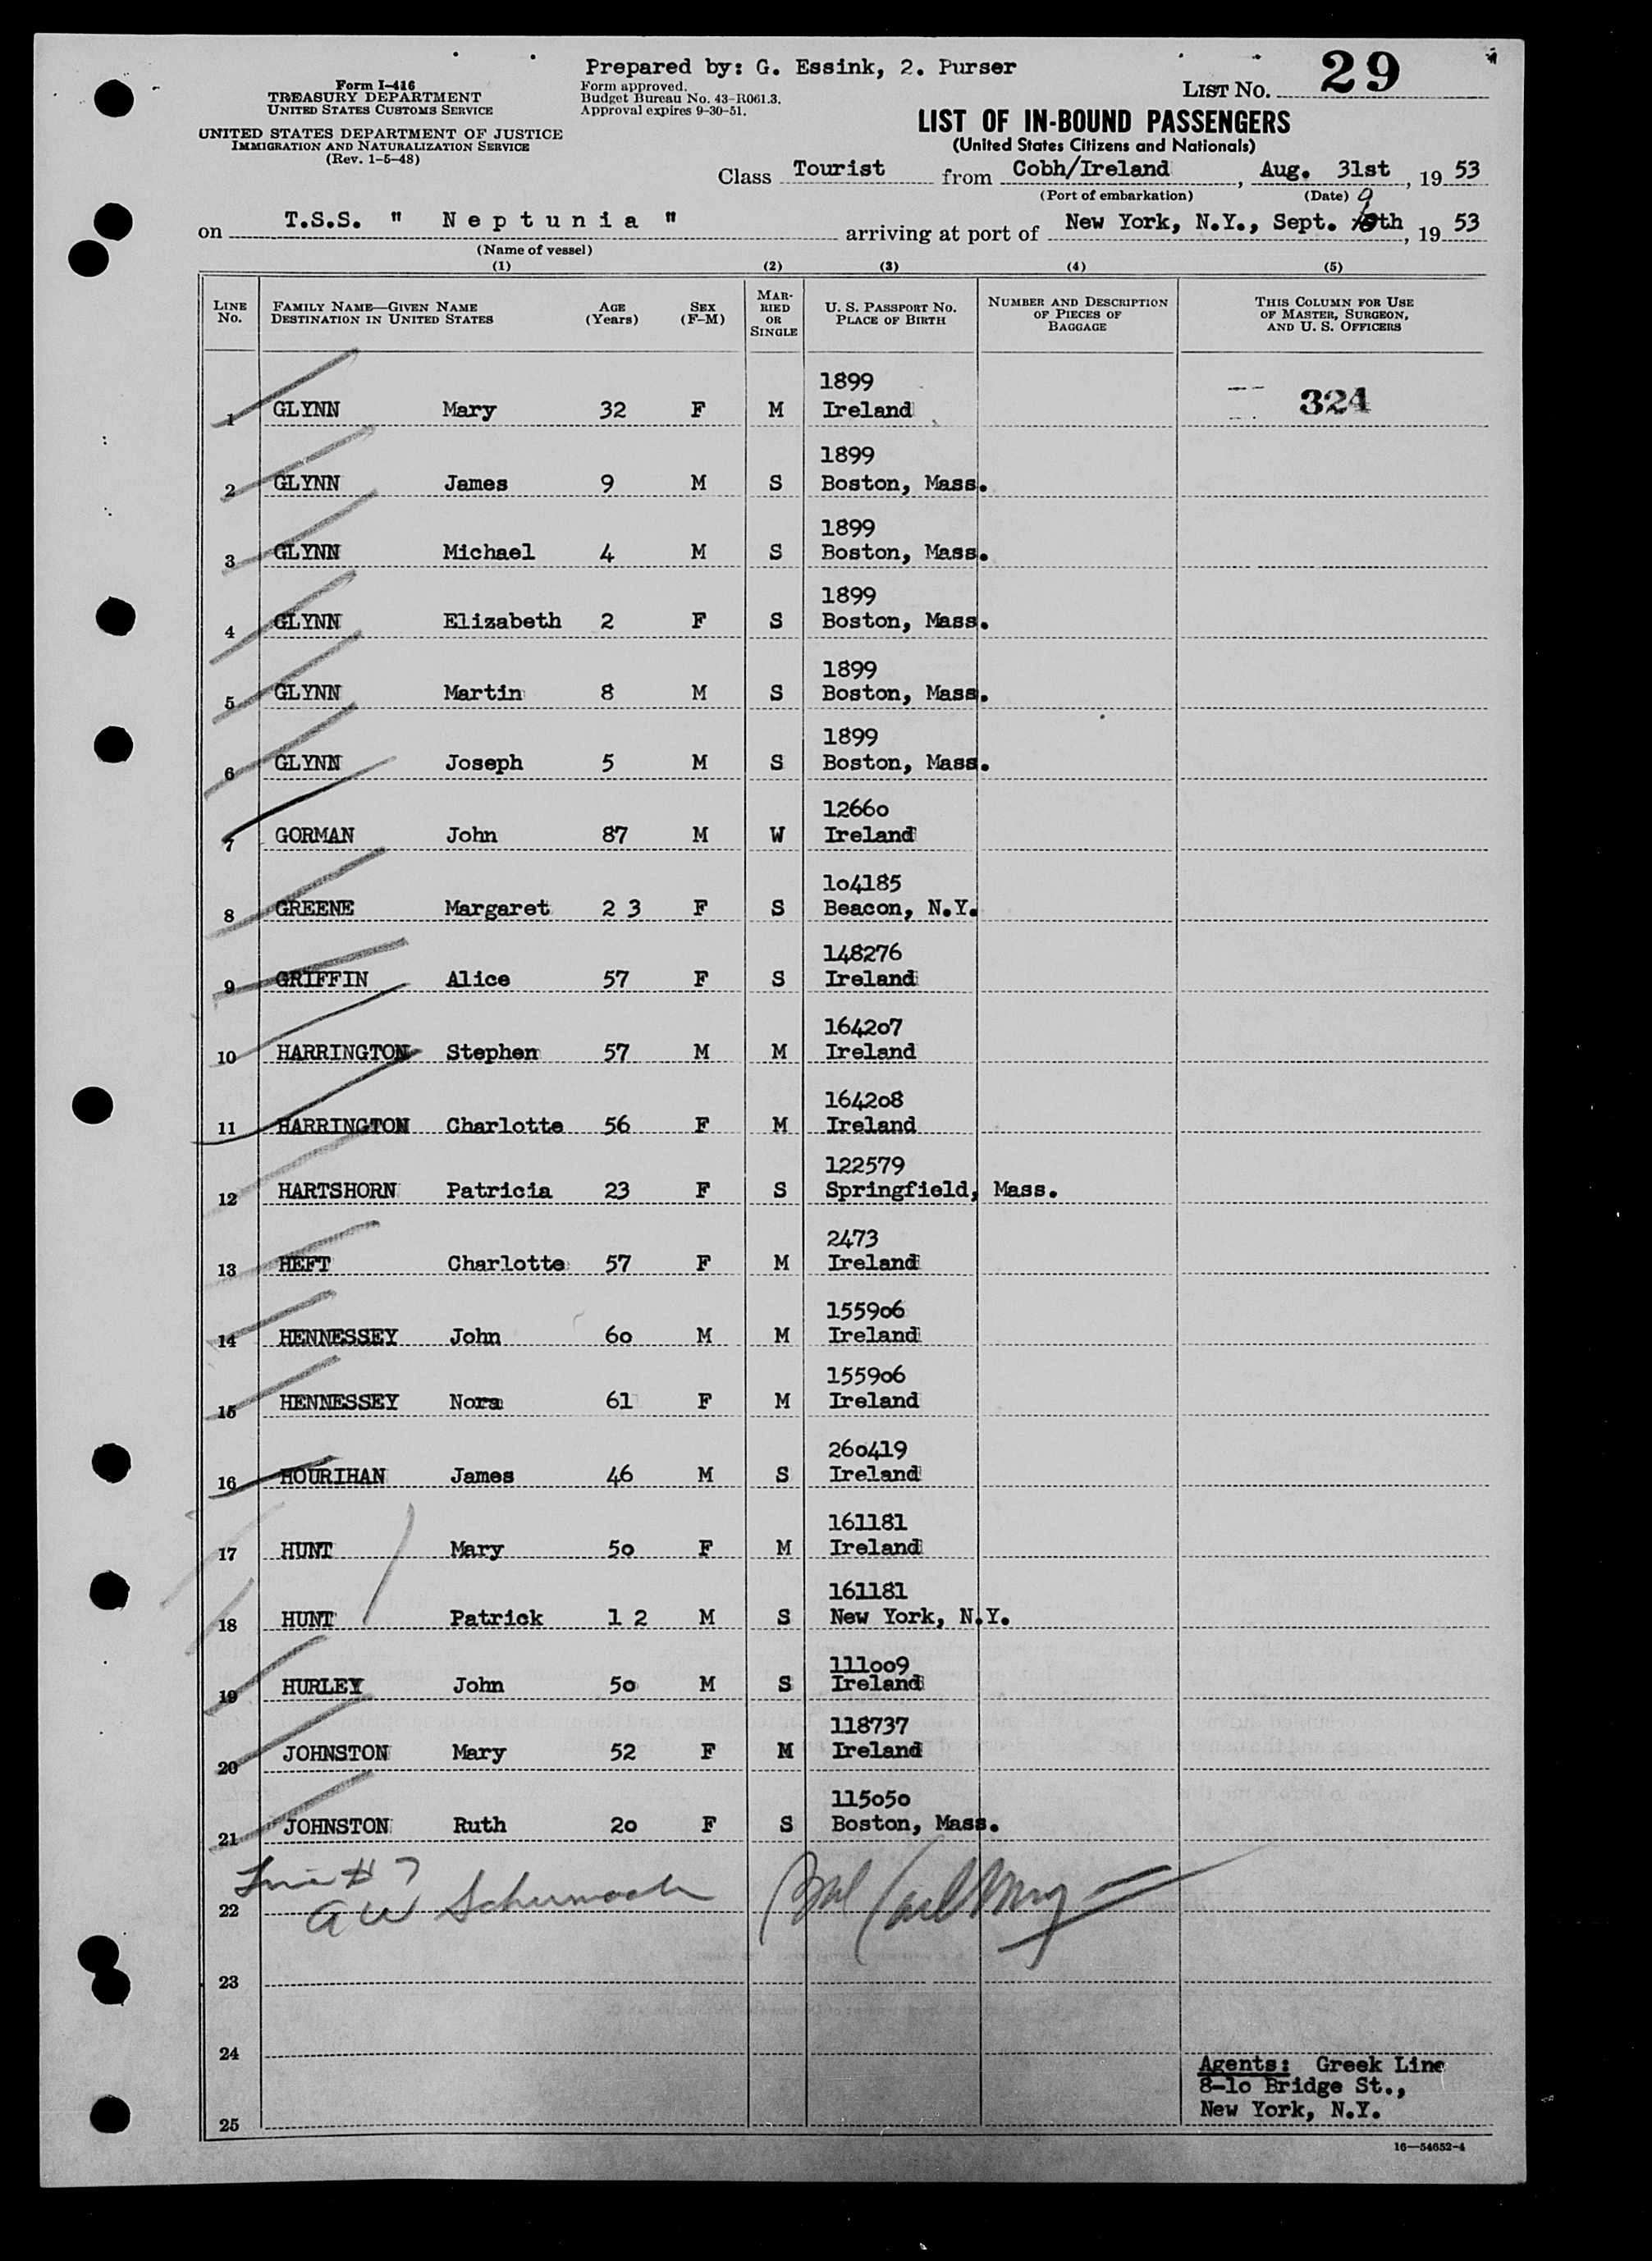 Prepared by: G. Essink, 2. Purser
Form I-416
TREASURY DEPARTMENT
UNITED STATES CUSTOMS SERVICE
Form approved.
Budget Bureau No. 43-R061.3.
Approval expires 9-30-51.
LIST NO. 29
UNITED STATES DEPARTMENT OF JUSTICE
IMMIGRATION AND NATURALIZATION SERVICE
(Rev. 1-5-48)
LIST OF IN-BOUND PASSENGERS
(United States Citizens and Nationals)
Class Tourist from Cobh/Ireland, Aug. 31st, 19 53
(Port of embarkation) (Date)
on T.S.S. " Neptunia " arriving at port of New York, N.Y., Sept. 9th, 19 53
(Name of vessel)
(1) (2) (3) (4) (5)
LINE NO. FAMILY NAME—GIVEN NAME DESTINATION IN UNITED STATES AGE (Years) SEX (F-M) MARRIED OR SINGLE U. S. PASSPORT NO. PLACE OF BIRTH NUMBER AND DESCRIPTION OF PIECES OF BAGGAGE THIS COLUMN FOR USE OF MASTER, SURGEON, AND U. S. OFFICERS
1899
1 GLYNN Mary 32 F M Ireland 324
1899
2 GLYNN James 9 M S Boston, Mass.
1899
3 GLYNN Michael 4 M S Boston, Mass.
1899
4 GLYNN Elizabeth 2 F S Boston, Mass.
1899
5 GLYNN Martin 8 M S Boston, Mass.
1899
6 GLYNN Joseph 5 M S Boston, Mass.
1266o
7 GORMAN John 87 M W Ireland
1o4185
8 GREENE Margaret 2 3 F S Beacon, N.Y.
148276
9 GRIFFIN Alice 57 F S Ireland
1642o7
10 HARRINGTON Stephen 57 M M Ireland
1642o8
11 HARRINGTON Charlotte 56 F M Ireland
122579
12 HARTSHORN Patricia 23 F S Springfield, Mass.
2473
13 HEFT Charlotte 57 F M Ireland
1559o6
14 HENNESSEY John 6o M M Ireland
1559o6
15 HENNESSEY Nora 61 F M Ireland
26o419
16 HOURIHAN James 46 M S Ireland
161181
17 HUNT Mary 5o F M Ireland
161181
18 HUNT Patrick 1 2 M S New York, N.Y.
111oo9
19 HURLEY John 5o M S Ireland
118737
20 JOHNSTON Mary 52 F M Ireland
115o5o
21 JOHNSTON Ruth 2o F S Boston, Mass.
Line # 7
22 AW
23
24
Agents: Greek Line
8-1o Bridge St.,
New York, N.Y.
25
16—54652-4